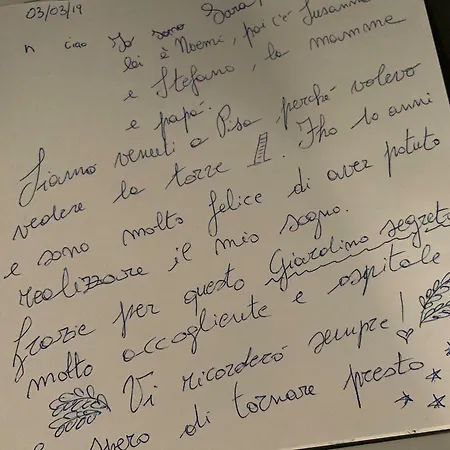 03/03/19
n ciao Io sono Sara,
lei è Noemi, poi c'è Susanna
e Stefano, la mamma
e papà.
Siamo venuti a Pisa perché volevo
vedere la torre. Ho 10 anni
e sono molto felice di aver potuto
realizzare il mio sogno.
Grazie per questo Giardino segreto
molto accogliente e ospitale
Vi ricorderò sempre!
spero di tornare presto